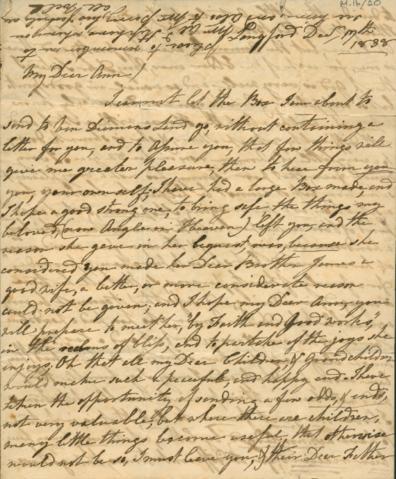 M.16/20
Longford Dec 17th
1838
My Dear Anne
I cannot let the Box I am about to
send to Van Diemens Land go, without containing a
letter for you, and to assure you, that few things will
give me greater pleasure, than to hear from you
your own self; I have had a large Box made, and
I hope a good strong one, to bring safe the things my
beloved, (now Angle in Heaven) left you, and the
reason she gave in her bequest, was, because she
considered you made her Dear Brother James a
good wife, a better, or more considerate reason
could not be given; and I hope my Dear Anne, you
will prepare to meet her, "by Faith and Good works,"
in the realms of bliss, and to partake of the joys she
enjoys. Oh that all my Dear Children & Grandchildren
would make such a peaceful, and happy end. I have
taken the opportunity of sending a few odds, & ends,
not very valuable, but where there are children,
many little things become useful, that otherwise
would not be so, I must leave you, & their Dear Father